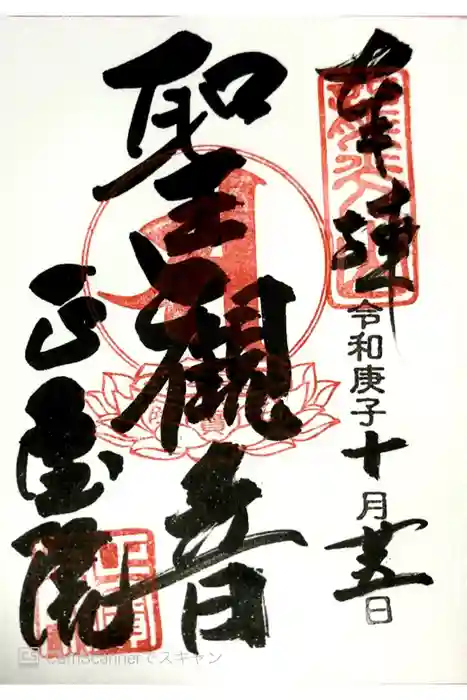 奉拜
令和庚子十月廿五日
聖觀音
院
CamScannerでスキャン